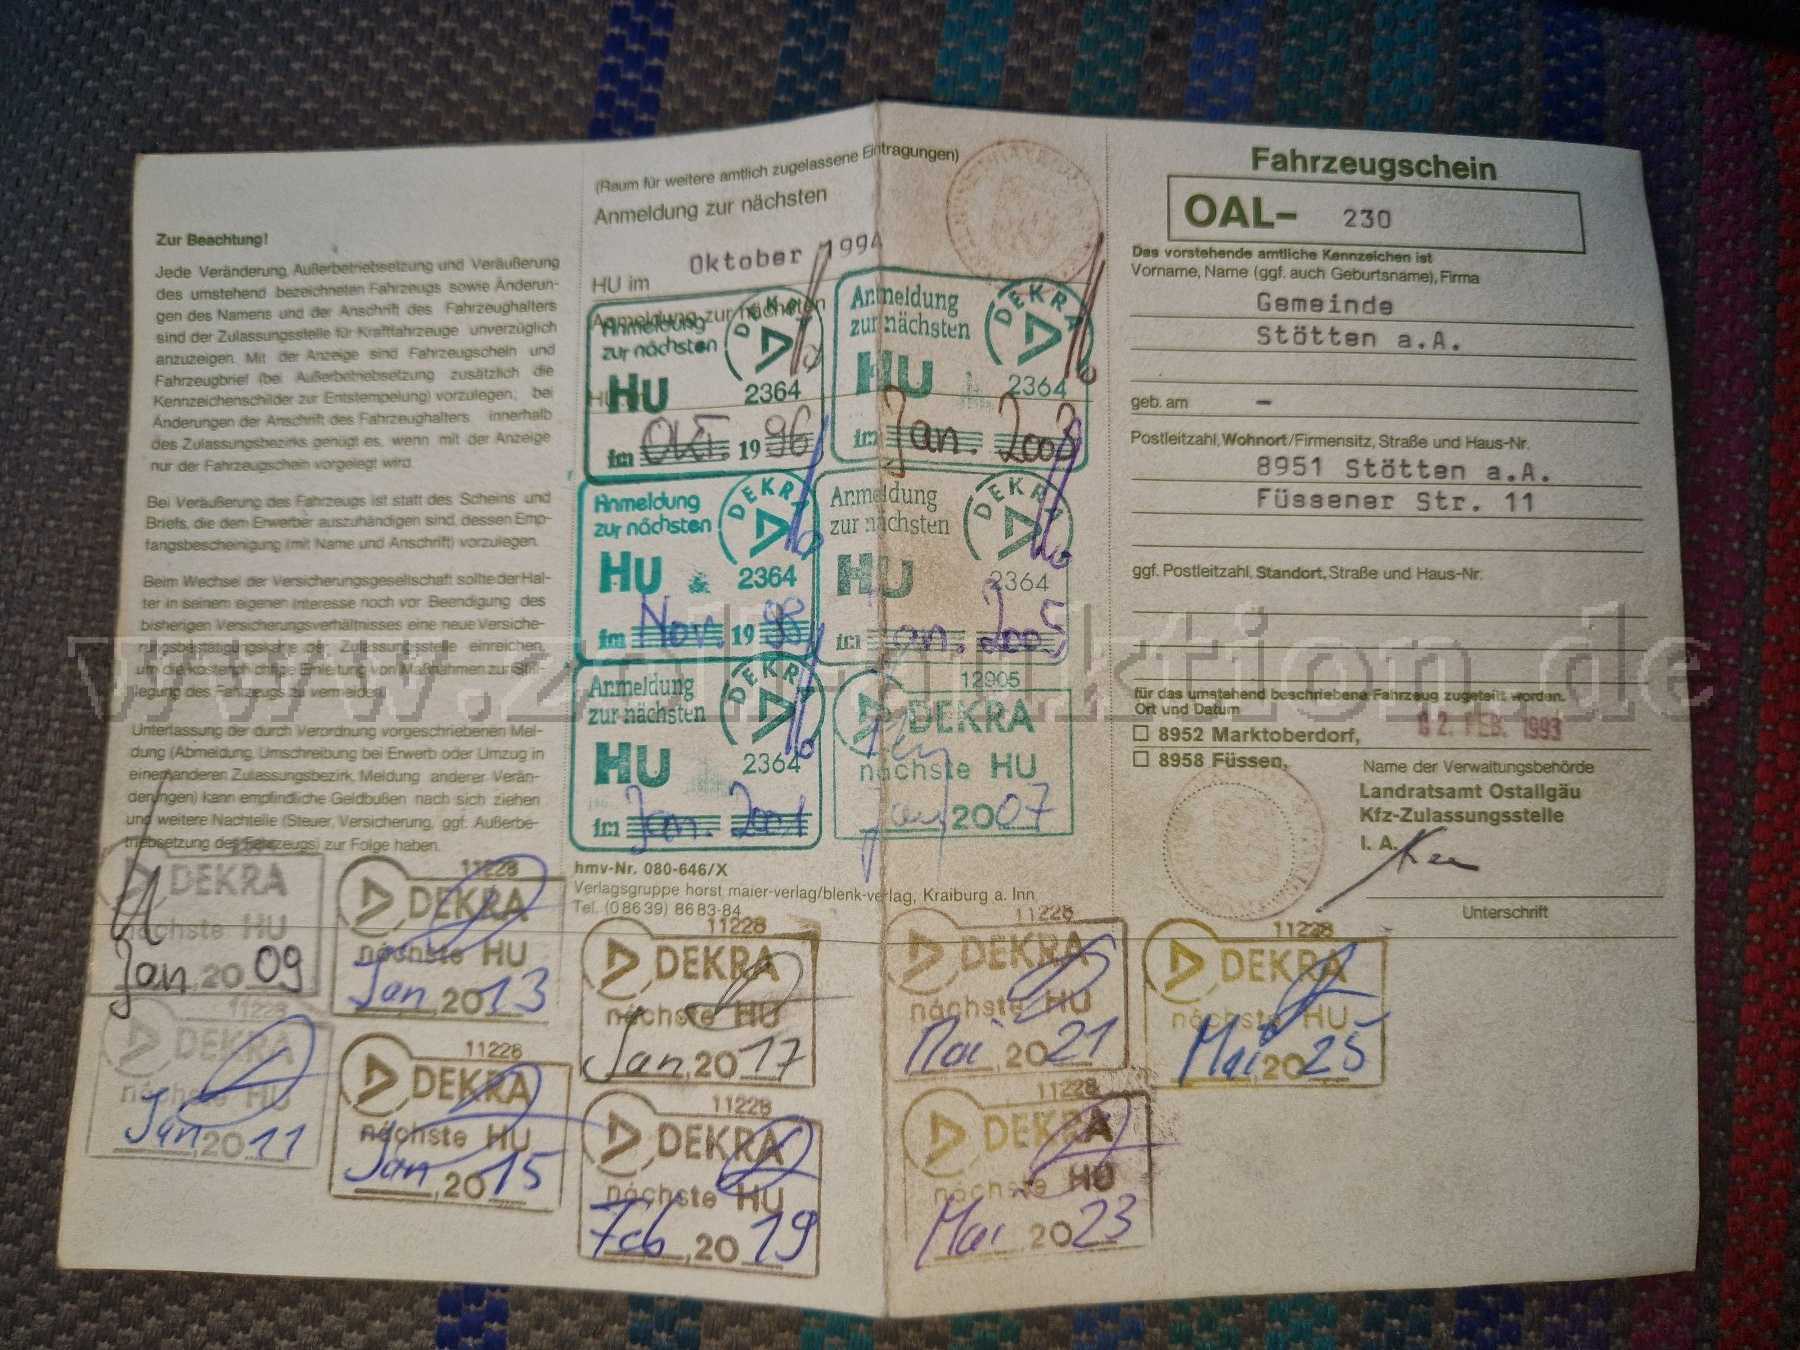 Zur Beachtung!
Jede Veränderung, Außerbetriebsetzung und Veräußerung
des umstehend bezeichneten Fahrzeugs sowie Änderun-
gen des Namens und der Anschrift des Fahrzeughalters
sind der Zulassungsstelle für Kraftfahrzeuge unverzüglich
anzuzeigen. Mit der Anzeige sind Fahrzeugschein und
Fahrzeugbrief (bei Außerbetriebsetzung zusätzlich die
Kennzeichenschilder zur Entstempelung) vorzulegen; bei
Änderungen der Anschrift des Fahrzeughalters innerhalb
des Zulassungsbezirks genügt es, wenn mit der Anzeige
nur der Fahrzeugschein vorgelegt wird.
Bei Veräußerung des Fahrzeugs ist statt des Scheins und
Briefs, die dem Erwerber auszuhändigen sind, dessen Emp-
fangsbescheinigung (mit Name und Anschrift) vorzulegen.
Beim Wechsel der Versicherungsgesellschaft sollte der Hal-
ter in seinem eigenen Interesse noch vor Beendigung des
bisherigen Versicherungsverhältnisses eine neue Versiche-
rungsbestätigungskarte der Zulassungsstelle einreichen,
um die kostenpflichtige Einleitung von Maßnahmen zur Still-
legung des Fahrzeugs zu vermeiden.
Unterlassung der durch Verordnung vorgeschriebenen Mel-
dung (Abmeldung, Umschreibung bei Erwerb oder Umzug in
einen anderen Zulassungsbezirk, Meldung anderer Verän-
derungen) kann empfindliche Geldbußen nach sich ziehen
und weitere Nachteile (Steuer, Versicherung, ggf. Außerbe-
triebsetzung des Fahrzeugs) zur Folge haben.
DEKRA
nächste HU
Jan. 2009
11228
DEKRA
nächste HU
Jan, 2011
11228
DEKRA
nächste HU
Jan, 2013
11228
DEKRA
nächste HU
Jan, 2015
(Raum für weitere amtlich zugelassene Eintragungen)
Anmeldung zur nächsten
HU im Oktober 1994
Anmeldung zur nächsten
Anmeldung
zur nächsten
DEKRA
HU 2364
im Okt 1996
Anmeldung
zur nächsten
DEKRA
HU 2364
im Nov. 1998
Anmeldung
zur nächsten
DEKRA
HU 2364
im Jan. 2001
Anmeldung
zur nächsten
DEKRA
HU 2364
im Jan. 2003
Anmeldung
zur nächsten
DEKRA
HU 2364
im Jan. 2005
12905
DEKRA
nächste HU
2007
hmv-Nr. 080-646/X
Verlagsgruppe horst maier-verlag/blenk-verlag, Kraiburg a. Inn
Tel. (08639) 8683-84
11228
DEKRA
nächste HU
Jan, 2017
11228
DEKRA
nächste HU
Feb, 2019
11228
DEKRA
nächste HU
Mai, 2021
11228
DEKRA
nächste HU
Mai 2023
Fahrzeugschein
OAL- 230
Das vorstehende amtliche Kennzeichen ist
Vorname, Name (ggf. auch Geburtsname), Firma
Gemeinde
Stötten a.A.
geb. am –
Postleitzahl, Wohnort/Firmensitz, Straße und Haus-Nr.
8951 Stötten a.A.
Füssener Str. 11
ggf. Postleitzahl, Standort, Straße und Haus-Nr.
für das umstehend beschriebene Fahrzeug zugeteilt worden.
Ort und Datum
8952 Marktoberdorf, 02. FEB. 1993
8958 Füssen,
Name der Verwaltungsbehörde
Landratsamt Ostallgäu
Kfz-Zulassungsstelle
I. A.
Unterschrift
11228
DEKRA
nächste HU
Mai, 2025
www.zoll-auktion.de